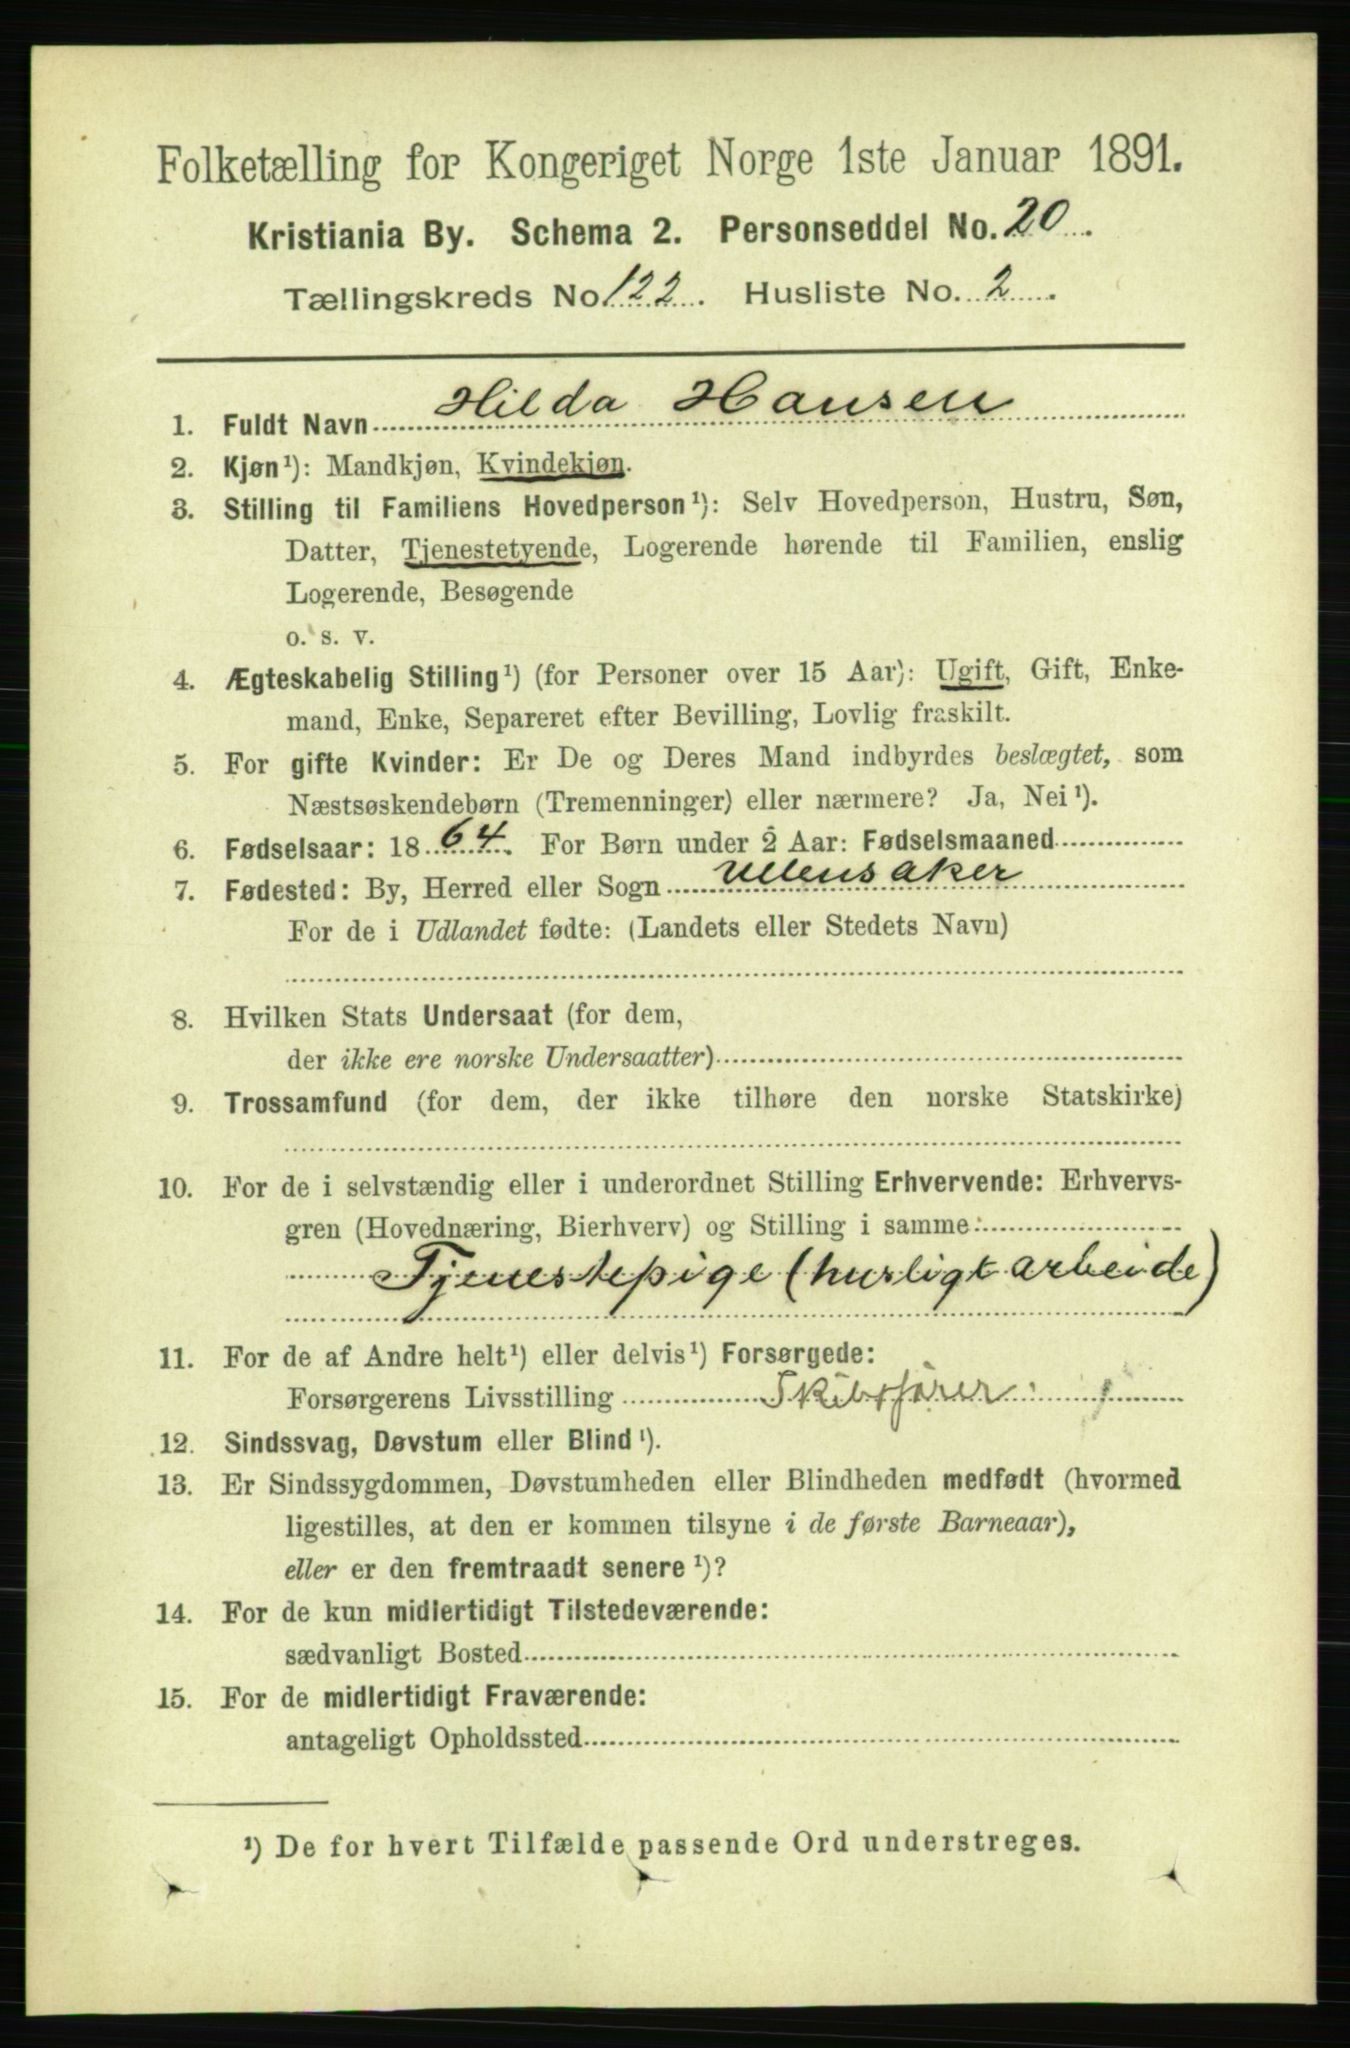 Folketælling for Kongeriget Norge 1ste Januar 1891.
Kristiania By. Schema 2. Personseddel No. 20.
Tællingskreds No. 122. Husliste No. 2.
1. Fuldt Navn Hilda Hansen
2. Kjøn¹): Mandkjøn, Kvindekjøn.
3. Stilling til Familiens Hovedperson¹): Selv Hovedperson, Hustru, Søn,
Datter, Tjenestetyende, Logerende hørende til Familien, enslig
Logerende, Besøgende
o. s. v.
4. Ægteskabelig Stilling¹) (for Personer over 15 Aar): Ugift, Gift, Enke-
mand, Enke, Separeret efter Bevilling, Lovlig fraskilt.
5. For gifte Kvinder: Er De og Deres Mand indbyrdes beslægtet, som
Næstsøskendebørn (Tremenninger) eller nærmere? Ja, Nei¹).
6. Fødselsaar: 1864. For Børn under 2 Aar: Fødselsmaaned
7. Fødested: By, Herred eller Sogn Ullensaker
For de i Udlandet fødte: (Landets eller Stedets Navn)
8. Hvilken Stats Undersaat (for dem,
der ikke ere norske Undersaatter)
9. Trossamfund (for dem, der ikke tilhøre den norske Statskirke)
10. For de i selvstændig eller i underordnet Stilling Erhvervende: Erhvervs-
gren (Hovednæring, Bierhverv) og Stilling i samme:
Tjenestepige (husligt arbeide)
11. For de af Andre helt¹) eller delvis¹) Forsørgede:
Forsørgerens Livsstilling Skibsfører
12. Sindssvag, Døvstum eller Blind¹).
13. Er Sindssygdommen, Døvstumheden eller Blindheden medfødt (hvormed
ligestilles, at den er kommen tilsyne i de første Barneaar),
eller er den fremtraadt senere¹)?
14. For de kun midlertidigt Tilstedeværende:
sædvanligt Bosted
15. For de midlertidigt Fraværende:
antageligt Opholdssted
¹) De for hvert Tilfælde passende Ord understreges.